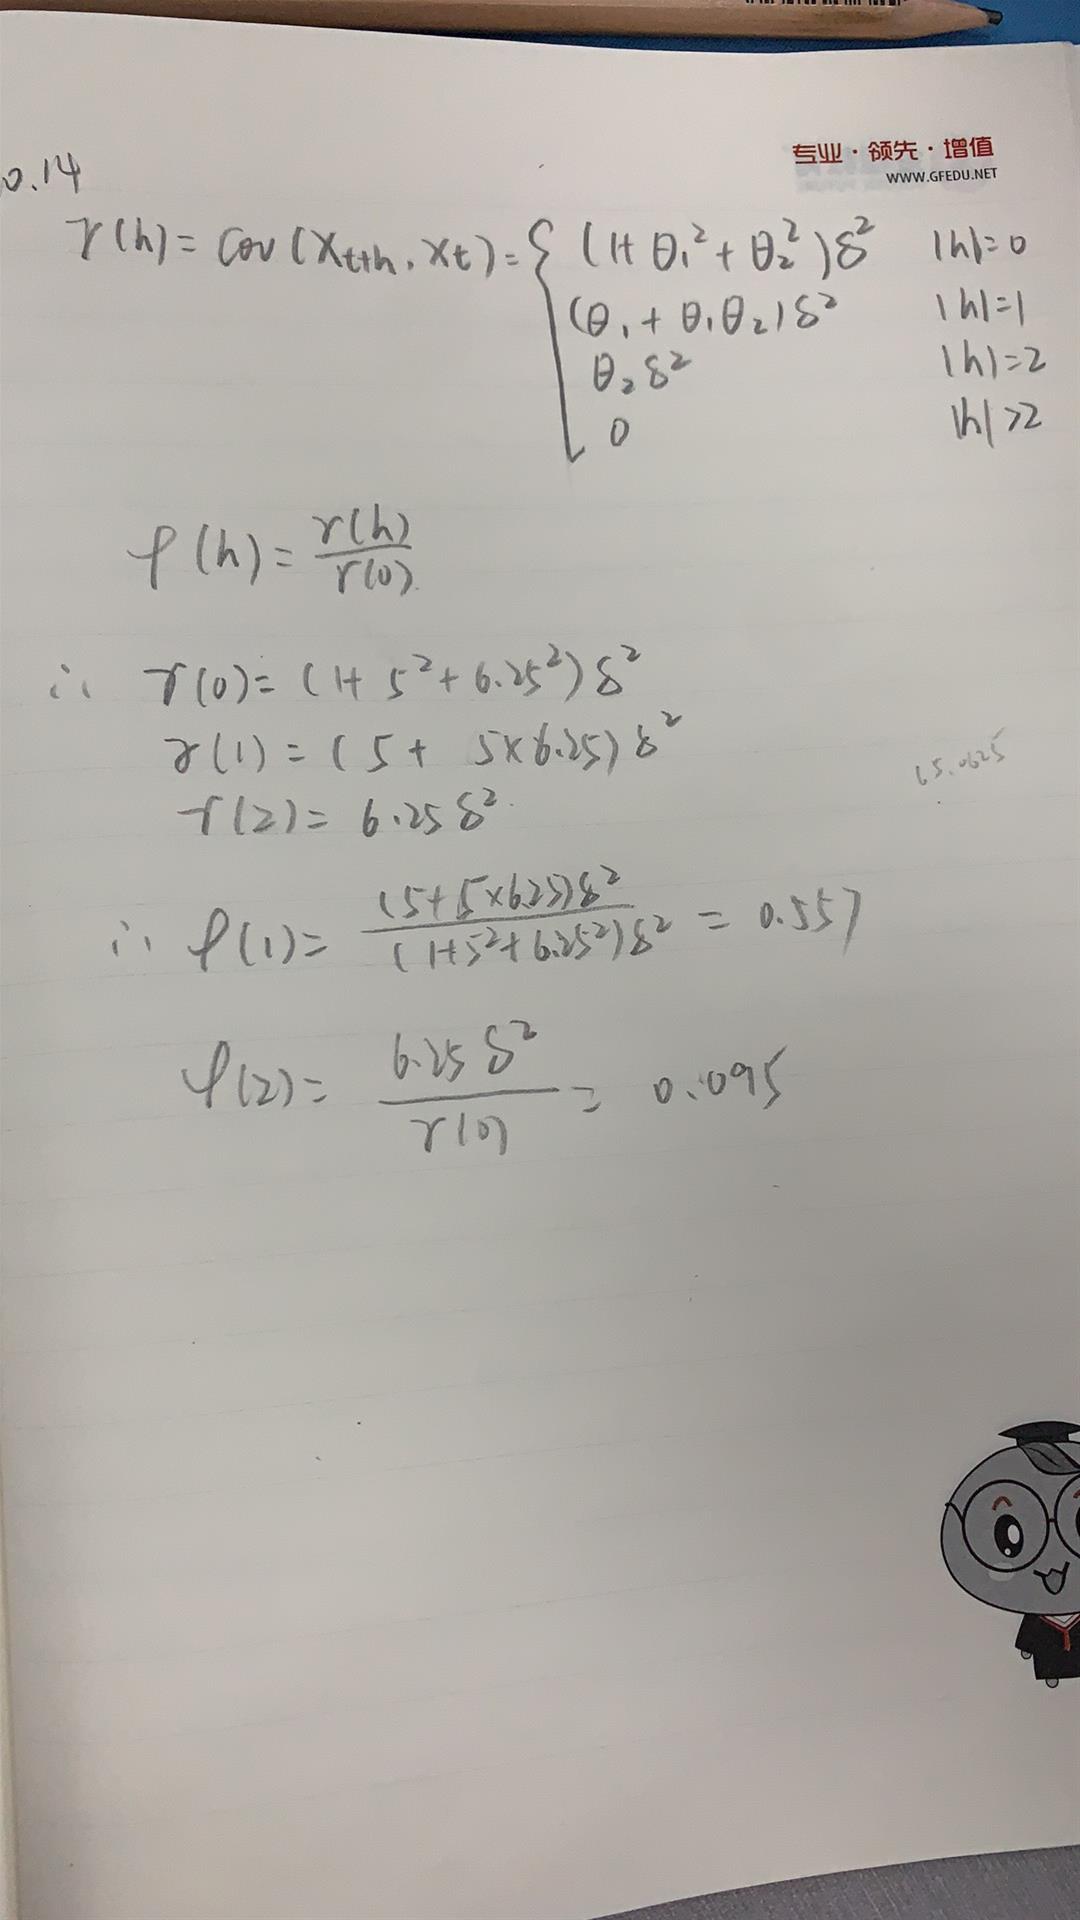 专业·领先·增值
WWW.GFEDU.NET
0.14
γ(h) = Cov(X_{t+h}, X_t) = { (1+θ₁²+θ₂²)δ² |h|=0
(θ₁+θ₁θ₂)δ² |h|=1
θ₂δ² |h|=2
0 |h|>2
ρ(h) = γ(h)/γ(0)
∴ γ(0) = (1+5²+6.25²)δ²
γ(1) = (5+5×6.25)δ²
65.0625
γ(2) = 6.25δ²
∴ ρ(1) = (5+5×6.25)δ²/(1+5²+6.25²)δ² = 0.557
ρ(2) = 6.25δ²/γ(0) = 0.095